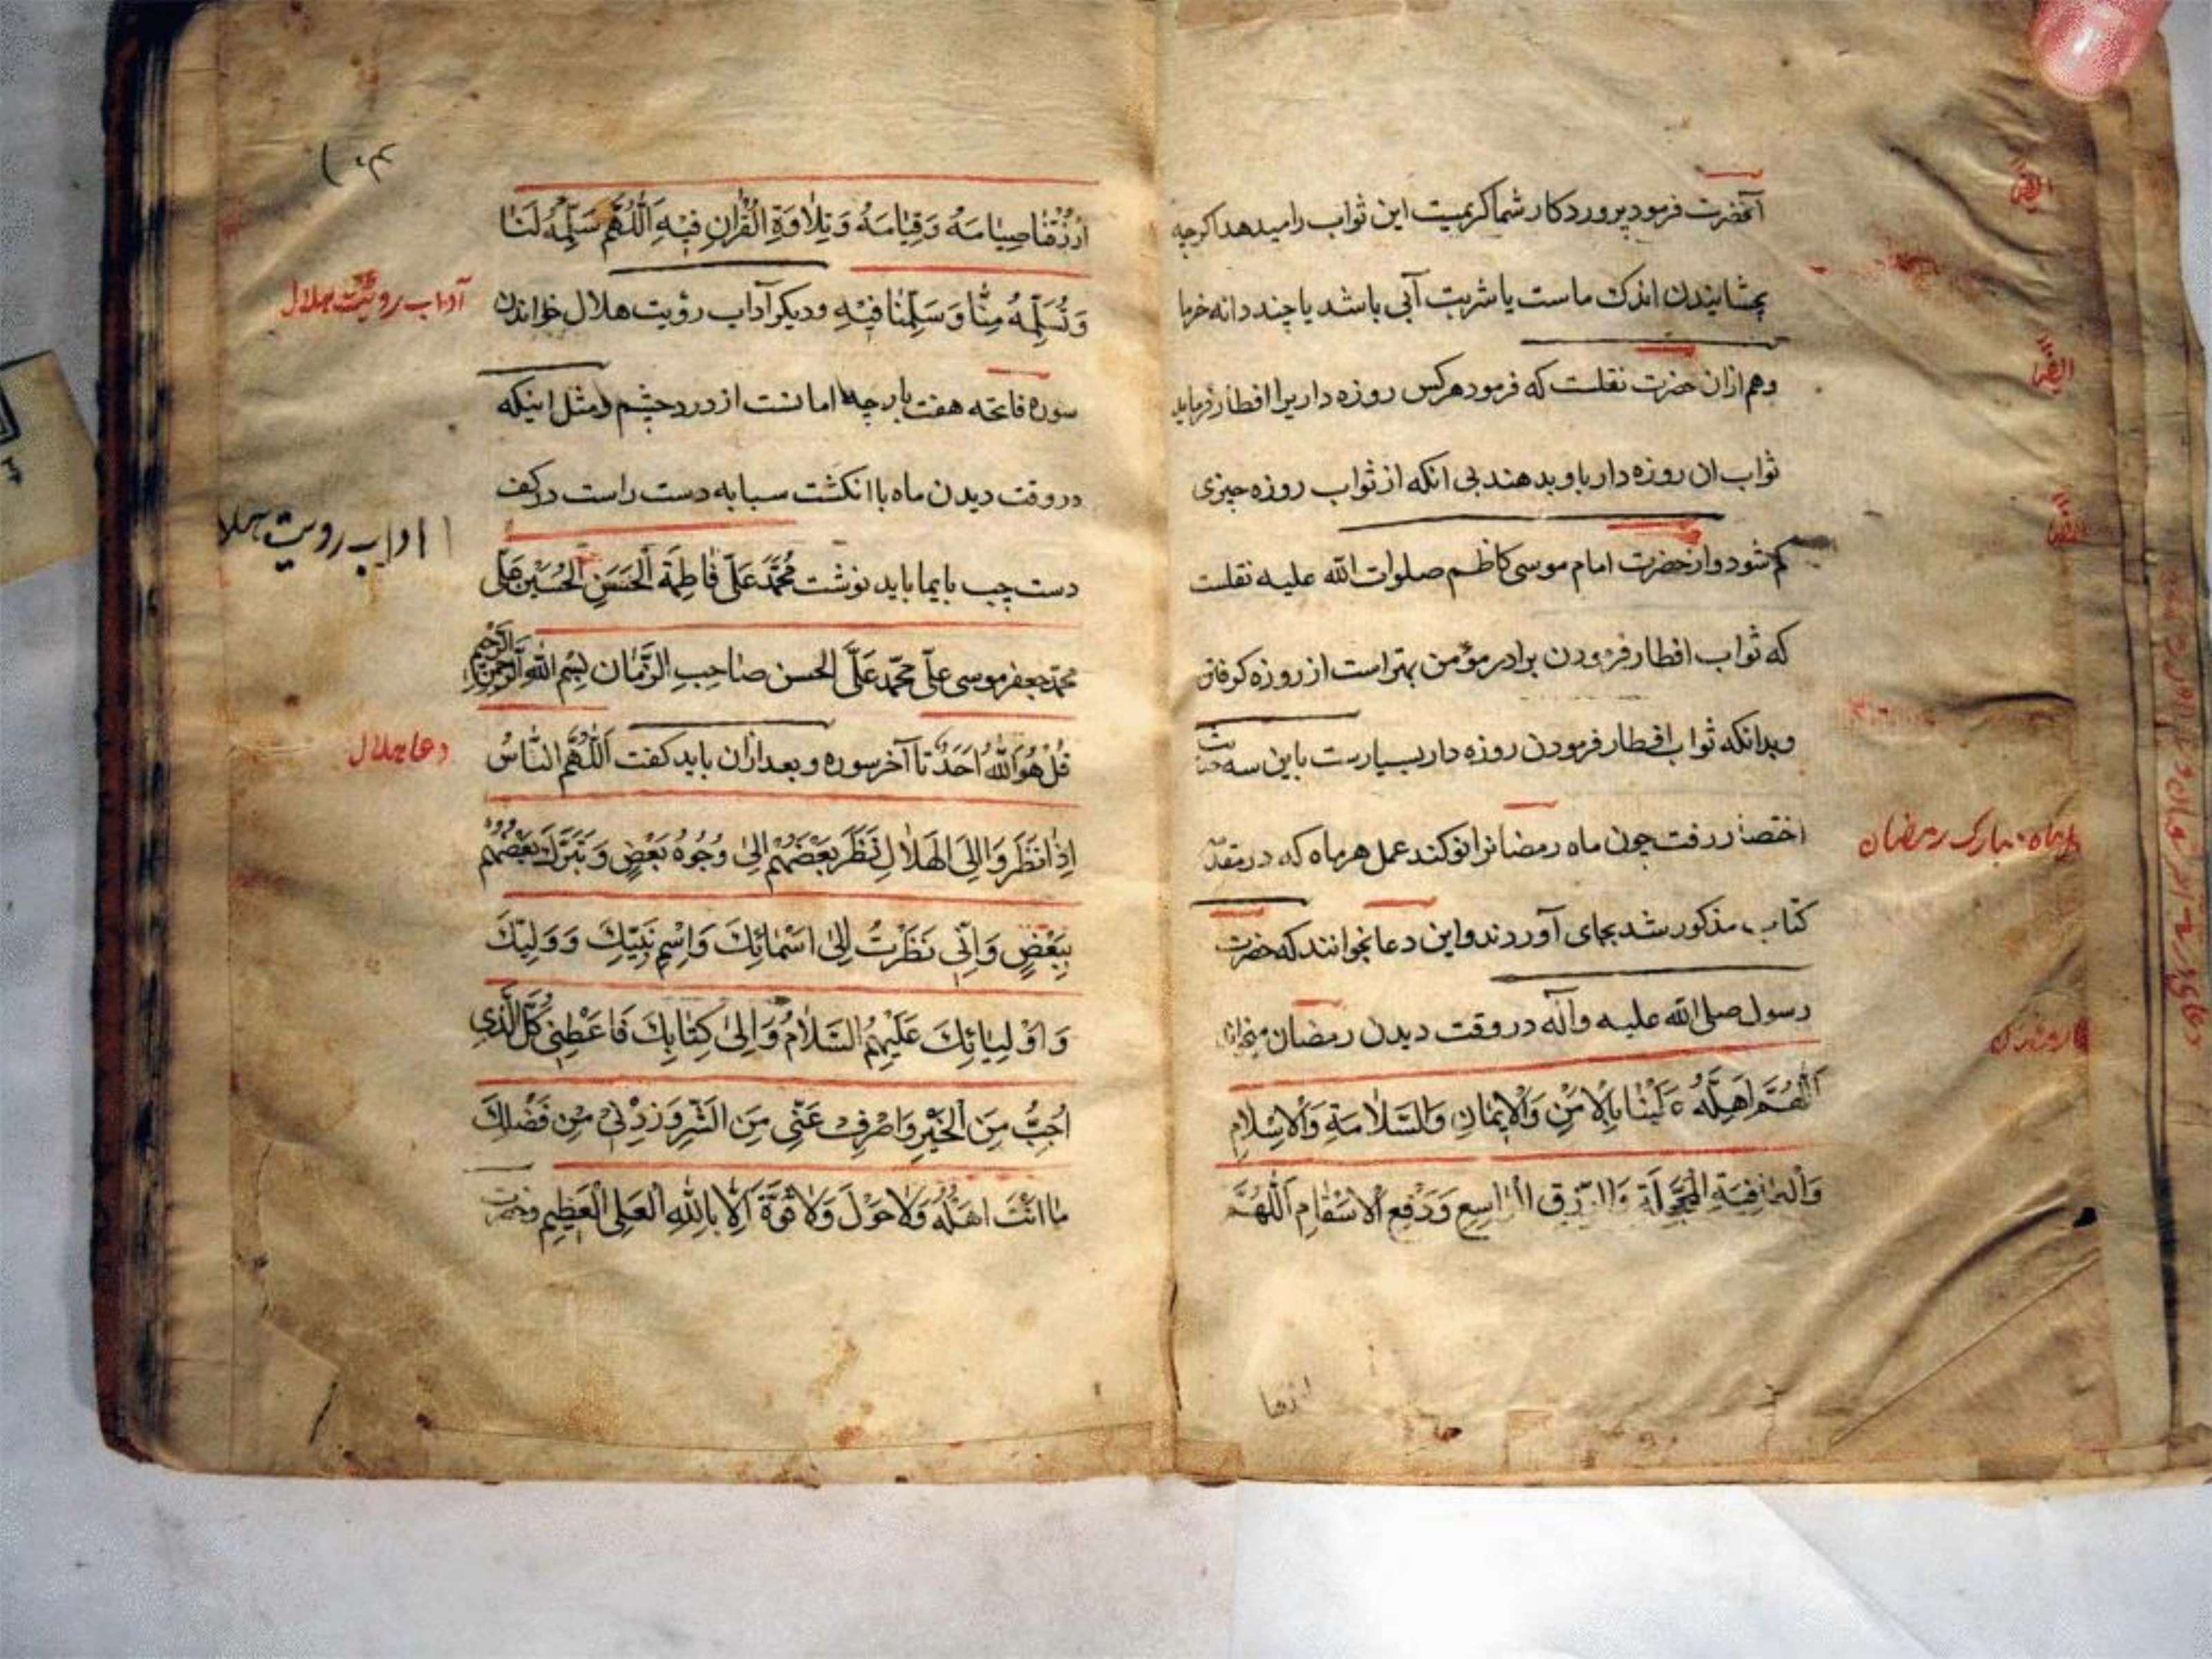 آنحضرت فرمود پروردکار شما کریمیست این ثواب را میدهد اکرچه
بچشانیدن اندک ماست یا شربت آبی باشد یا چند دانه خرما
وهم ازان حضرت نقلست که فرمود هرکس روزه داریرا افطار فرماید
ثواب ان روزه دار باو بدهند بی انکه از ثواب روزه چیزی
کم شود و از حضرت امام موسی کاظم صلوات الله علیه نقلست
که ثواب افطار فرمودن برادر مؤمن بهتر است از روزه کرفتن
وبدانکه ثواب افطار فرمودن روزه دار بسیارست باین سه
اختصار رفت چون ماه رمضانرا نو کنند عمل هر ماه که در مقدّ
کتاب مذکور شد بجای آورند واین دعا بخوانند که حضرت
رسول صلی الله علیه وآله در وقت دیدن رمضان میخواند
اَللّهُمَّ اَهِلَّهُ عَلَیْنَا بِالْاَمْنِ وَالْاِیْمَانِ وَالسَّلَامَةِ وَالْاِسْلَامِ
وَالْعَافِیَةِ الْمُجَلَّلَةِ وَالرِّزْقِ الْوَاسِعِ وَدَفْعِ الْاَسْقَامِ اَللّٰهُمَّ
ماه مبارک رمضان
اُرْزُقْنَا صِیَامَهُ وَقِیَامَهُ وَتِلَاوَةَ الْقُرْاٰنِ فِیْهِ اَللّٰهُمَّ سَلِّمْهُ لَنَا
وَتَسَلَّمْهُ مِنَّا وَسَلِّمْنَا فِیْهِ ودیکر آداب رؤیت هلال خواندن
سوره فاتحه هفت بار چه امانست از درد چشم ومثل اینکه
در وقت دیدن ماه با انکشت سبابه دست راست در کف
دست چپ بایما باید نوشت مُحَمَّدٌ عَلِیٌّ فَاطِمَةُ اَلْحَسَنِ الْحُسَیْنِ عَلِیٌّ
محمّد جعفر موسی علیّ محمّد عَلیّ الحسن صَاحِبِ الزَّمَان بِسْمِ اللهِ الرَّحْمٰنِ الرَّحِیْمِ
قُلْ هُوَ اللّٰهُ اَحَدٌ تا آخر سوره و بعد ازان باید کفت اَللّٰهُمَّ النَّاسُ
اِذَا نَظَرُوا اِلَی الْهِلَالِ نَظَرَ بَعْضُهُمْ اِلٰی وُجُوهِ بَعْضٍ وَ تَبَرَّكَ بَعْضُهُمْ
بِبَعْضٍ وَاِنِّی نَظَرْتُ اِلٰی اَسْمَائِكَ وَاِسْمِ نَبِیِّكَ وَوَلِیِّكَ
وَ اَوْلِیَائِكَ عَلَیْهِمُ السَّلَامُ وَ اِلٰی کِتَابِكَ فَاَعْطِنِی کُلَّ الَّذِی
اُحِبُّ مِنَ الْخَیْرِ وَاصْرِفْ عَنِّی مِنَ الشَّرِّ وَزِدْنِی مِنْ فَضْلِكَ
مَا اَنْتَ اَهْلُهُ وَلَا حَوْلَ وَلَا قُوَّةَ اِلَّا بِاللّٰهِ الْعَلِیِّ الْعَظِیْمِ وحضرت
آداب رویت هلال
اداب رویت هلا
دعا هلال